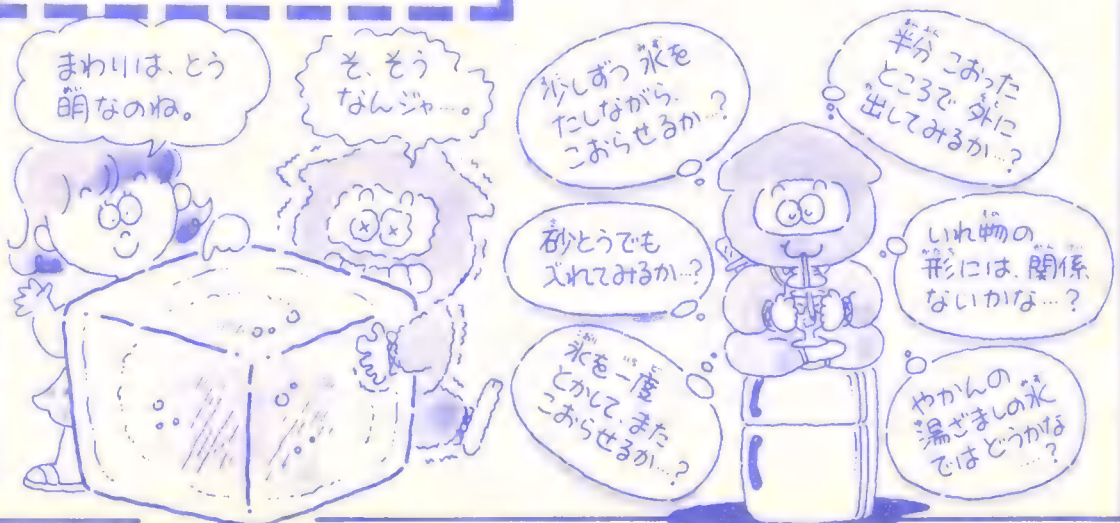 まわりは、とう
明なのね。
そ、そう
なんジャ…。
少しずつ 水を
たしながら、
こおらせるか…?
半分 こおった
ところで 外に
出してみるか…?
砂とうでも
入れてみるか…?
いれ物の
形には、関係
ないかな…?
氷を一度
とかして、また
こおらせるか…?
やかんの
湯ざましの水
ではどうかな
…?